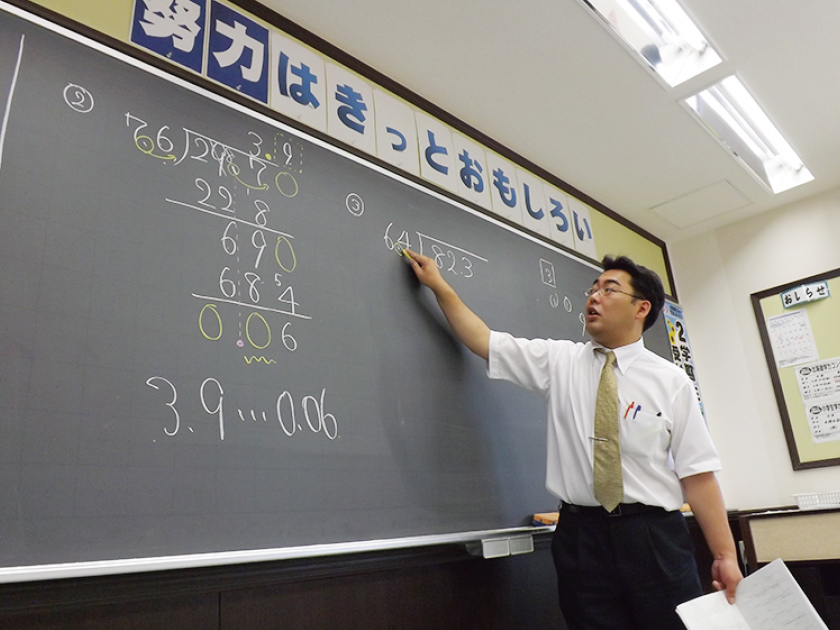 努力はきっとおもしろい
②
3.9
7.6)29.7 0
22 8
6 9 0
6 8 5 4
0 . 0 6
3.9…0.06
③
6.4)82.3
3
おしらせ
2学期